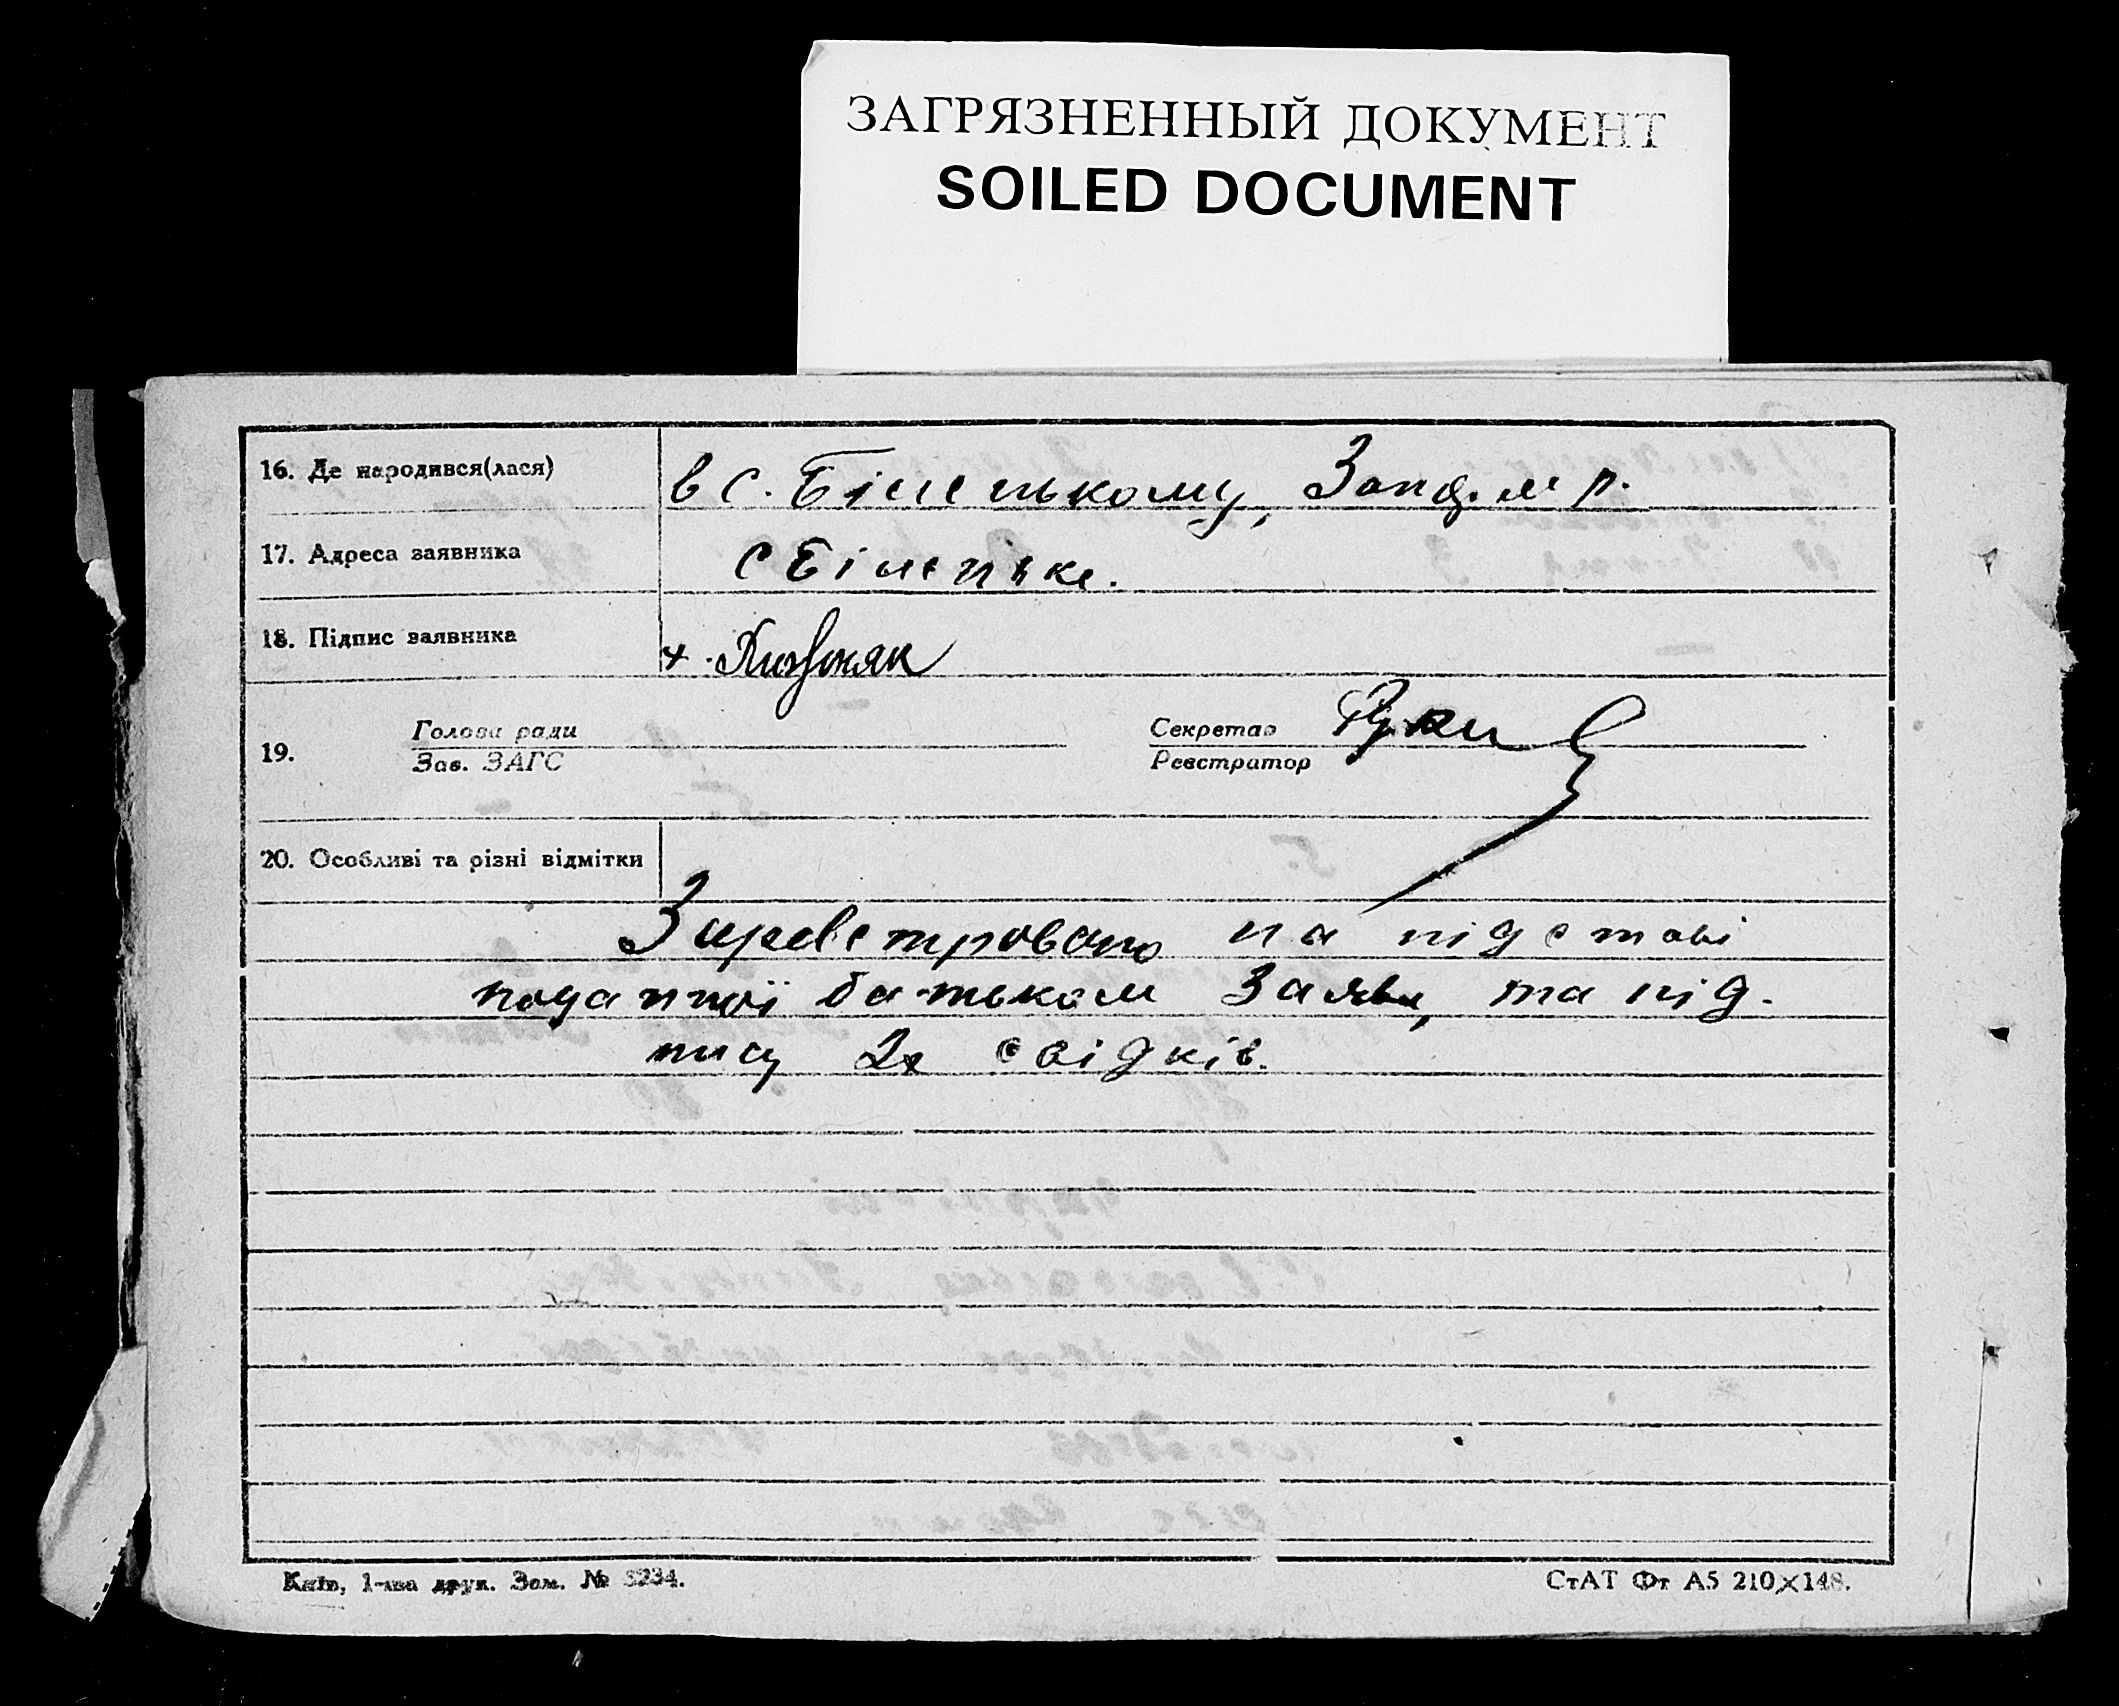 ЗАГРЯЗНЕННЫЙ ДОКУМЕНТ
SOILED DOCUMENT
16. Де народився(лася) в с. Біленькому, Запор. р.
17. Адреса заявника с Біленьке.
18. Підпис заявника
19. Голова ради Секретар
Зав. ЗАГС Реєстратор
20. Особливі та різні відмітки
Зареєстровано на підставі
поданої батьком заяви, та під-
пису 2х свідків.
Київ, 1-ша друк. Зам. № 3234.
СтАТ Фт А5 210×148.